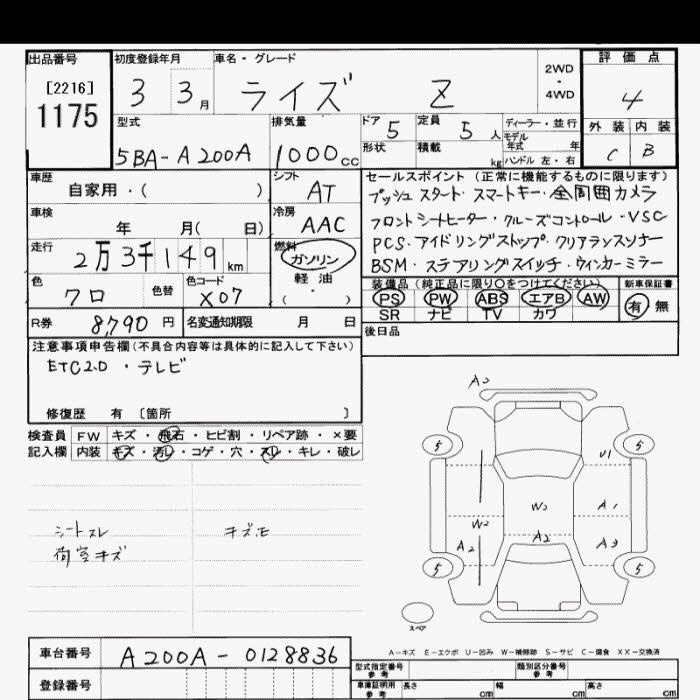 出品番号 初度登録年月 車名・グレード 評価点
[2216] 2WD
1175 3 3月 ライズ Z ・ 4
4WD
型式 排気量 ドア 5 定員 5人 ディーラー・並行 外装 内装
モデル年式 年
5BA-A200A 1000cc 形状 積載 kg ハンドル 左・右 C B
車歴 自家用・( ) シフト AT セールスポイント (正常に機能するものに限ります)
プッシュスタート・スマートキー・全周囲カメラ
車検 年 月( 日) 冷房 AAC フロントシートヒーター・クルーズコントロール・VSC
走行 2万3千149km 燃料 ガソリン PCS・アイドリングストップ・クリアランスソナー
軽油 BSM・ステアリングスイッチ・ウィンカーミラー
色 クロ 色替 色コード X07 ( ) 装備品(純正品に限り○をつけてください) 新車保証書
PS PW ABS エアB AW 有 無
SR ナビ TV カワ
R券 8,790円 名変通知期限 月 日 後日品
注意事項申告欄(不具合内容等は具体的に記入して下さい)
ETC2.0・テレビ
修復歴 有 〔箇所 〕
検査員 FW キズ・飛石・ヒビ割・リペア跡・×要
記入欄 内装 キズ・汚レ・コゲ・穴・スレ・キレ・破レ
シートスレ キズ.モ
荷室キズ
A2
5 5
U1
W2 A1
W2 A2
A2 A3
5 5
スペア
A−キズ E−エクボ U−凹み W−補修跡 S−サビ C−腐食 XX−交換済
車台番号 A200A-0128836
型式指定番号 参考 類別区分番号 参考
登録番号 車庫証明用 参考 長さ cm 幅 cm 高さ cm